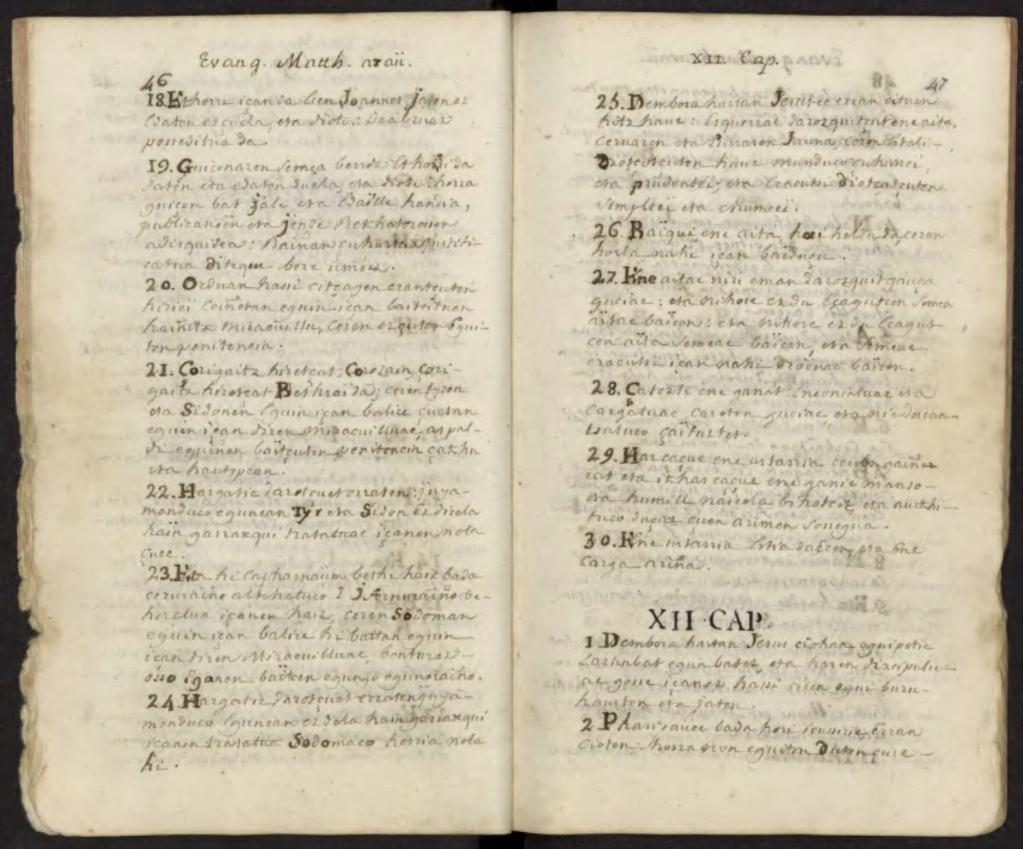 Evang. Matth. araü.
46
18. Ethorri içan da ecen Joannes jaten ez
Edaten ez cuela, eta diote: Deabruac
poneditua da.
19. Guiçonaren Semea berriz Ethorri da
Jaten eta edaten duela, eta diote: horra
guiçon bat jale eta Edaille handia,
publicanoen eta jende
adisquidea: Bainan
bere
20. Orduan hassi citçayen
hiriei ceinetan eguin içan baitcituen
hainitz miracuillu, ceren ez çuten Egui-
ten penitencia.
21. Çorigaitz hiretçat: Corozain, çori-
gaitz hiretçat Bethsaida, ceren tyren
eta Sidonen Eguin içan balire çuetan
eguin içan diren miracuilluac, aspal-
di eguinen baitçuten penitencia çakhu
eta hautspean.
22. Hargatic darotçuet erraten: juya-
menduco egunean Tyr eta Sidon ez direla
hain garrazqui tratatuac içanen nola
çuec.
23. Eta hi Capharnaüm bethi haiz bada
ceruraino altchatuco? Ifernuraino be-
heratua içanen haiz, ceren Sodoman
eguin içan balire hi baitan eguin
içan diren Miracuilluac,
egungo egunoraino.
24. Hargatic darotçuet erraten juya-
menduco Egunean ez dela hain garrazqui
içanen tratatua Sodomaco herria nola
hi.

XII. Cap.
47
25. Dembora hartan Jesusec erran cituen
hitz hauc: Esquerrac darozquitçut ene aita,
Ceruaren eta Lurraren Jauna, ceren Estali-
 hauc munduco çuhurrei,
eta prudentei: eta Eracutsi
simpleei eta chumeei.
26. Baïqui ene aita, hori hala da, ceren
horla nahi içan baïduçu.
27. Ene aitac niri eman darozquit gauça
guciac: eta nihorc ez du Eçagutcen Semea
aïtac baïcen: eta nihorc ez du Eçagut-
cen aita Semeac baïcen, eta Semeac
eracutsi içan nahi baïcen.
28. Çatozte ene ganat
cargatuac çareten guciac, eta nic
çaïtuztet.
29. Har çaçue ene uztarria çuen gainean
eta ikhas çaçue ene ganic manso
eta humill naïcela bihotcez, eta
duçue çuen arimen
30. Ene uztarria da, eta Ene
carga ariña.
XII CAP.
1 Dembora hartan Jesus
egun batez, eta haren discipulu-
ac gosse içanez, hassi ciren buru-
 eta jaten.
2 Phariseuec bada hori icussiric Erran
cioten: horra non eguiten Duten çure